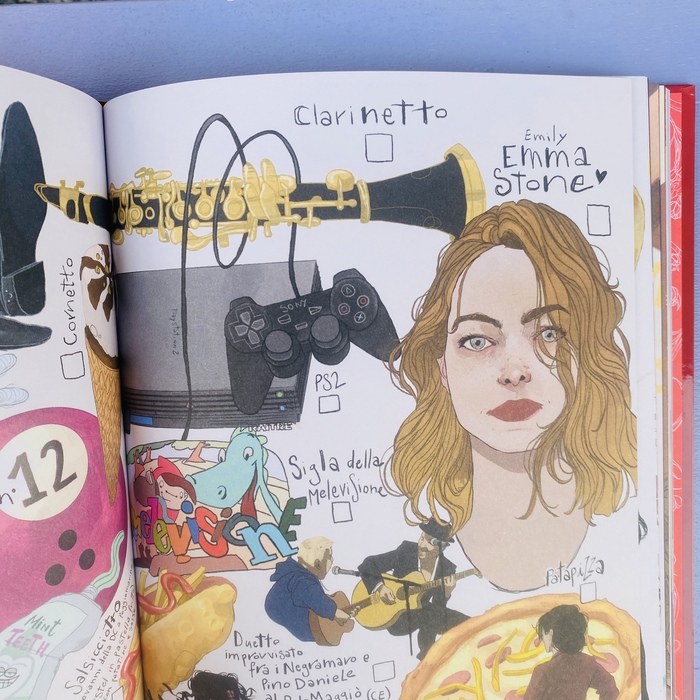 Clarinetto
Emily
Emma
Stone
Cornetto
SONY
PS2
Sigla della
Melevisione
Melevisione
n. 12
Patapizza
MINT
TEETH
Salsicciotto
Duetto
improvvisato
fra i Negramaro e
Pino Daniele
al 1 Maggio (CE)